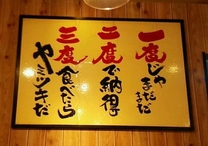 一度じゃ
まだまだ
二度で納得
三度食べたら
ヤミツキだ